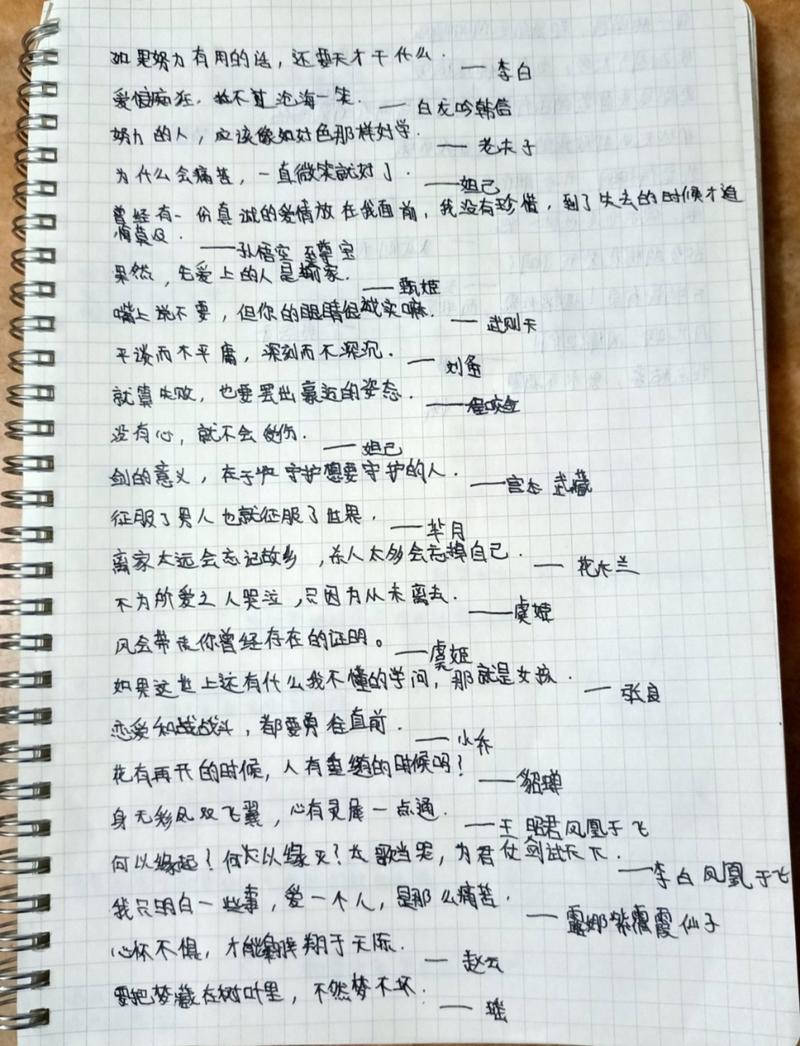 如果努力有用的话，还要天才干什么．——李白
爱恨痴狂，敌不过沧海一笑．——白龙吟韩信
努力的人，应该像如好色那样好学．——老夫子
为什么会痛苦，一直微笑就好了．——妲己
曾经有一份真诚的爱情放在我面前，我没有珍惜，到了失去的时候才追
悔莫及．——孙悟空 至尊宝
果然，先爱上的人是输家．——甄姬
嘴上说不要，但你的眼睛很诚实嘛．——武则天
平淡而不平庸，深刻而不深沉．——刘备
就算失败，也要摆出豪迈的姿态．——程咬金
没有心，就不会受伤．——妲己
剑的意义，在于 守护想要守护的人．——宫本 武藏
征服了男人也就征服了世界．——芈月
离家太远会忘记故乡，杀人太多会忘掉自己．——花木兰
不为所爱之人哭泣，只因为从未离去．——虞姬
风会带走你曾经存在的证明。——虞姬
如果这世上还有什么我不懂的学问，那就是女孩．——张良
恋爱和战战斗，都要勇往直前．——小乔
花有再开的时候，人有重逢的时候吗？——貂蝉
身无彩凤双飞翼，心有灵犀一点通．——王昭君凤凰于飞
何以缘起？何以缘灭？长歌当哭，为君仗剑试天下．——李白凤凰于飞
我只明白一些事，爱一个人，是那么痛苦．——露娜紫霞仙子
心怀不惧，才能翱翔于天际．——赵云
要把梦藏在树叶里，不然梦不坏．——瑶